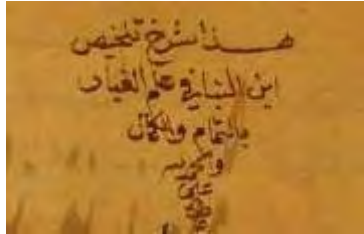 هذا شرح تلخيص
ابن البنا في علم الغبار
بالتمام والكمال
على